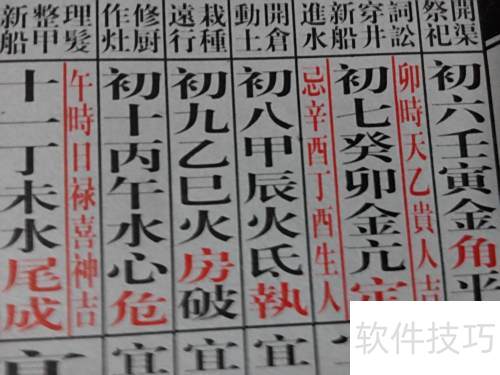 開渠
祭祀
初六壬寅金角平
詞訟
穿井
新船
進水
卯時天乙貴人吉
初七癸卯金亢定
忌辛酉丁酉生人
開倉
動土
初八甲辰火氐執
宜
栽種
遠行
初九乙巳火房破
宜
修厨
作灶
初十丙午水心危
宜
理髮
整甲
新船
午時日禄喜神吉
十一丁未水尾成
软件技巧